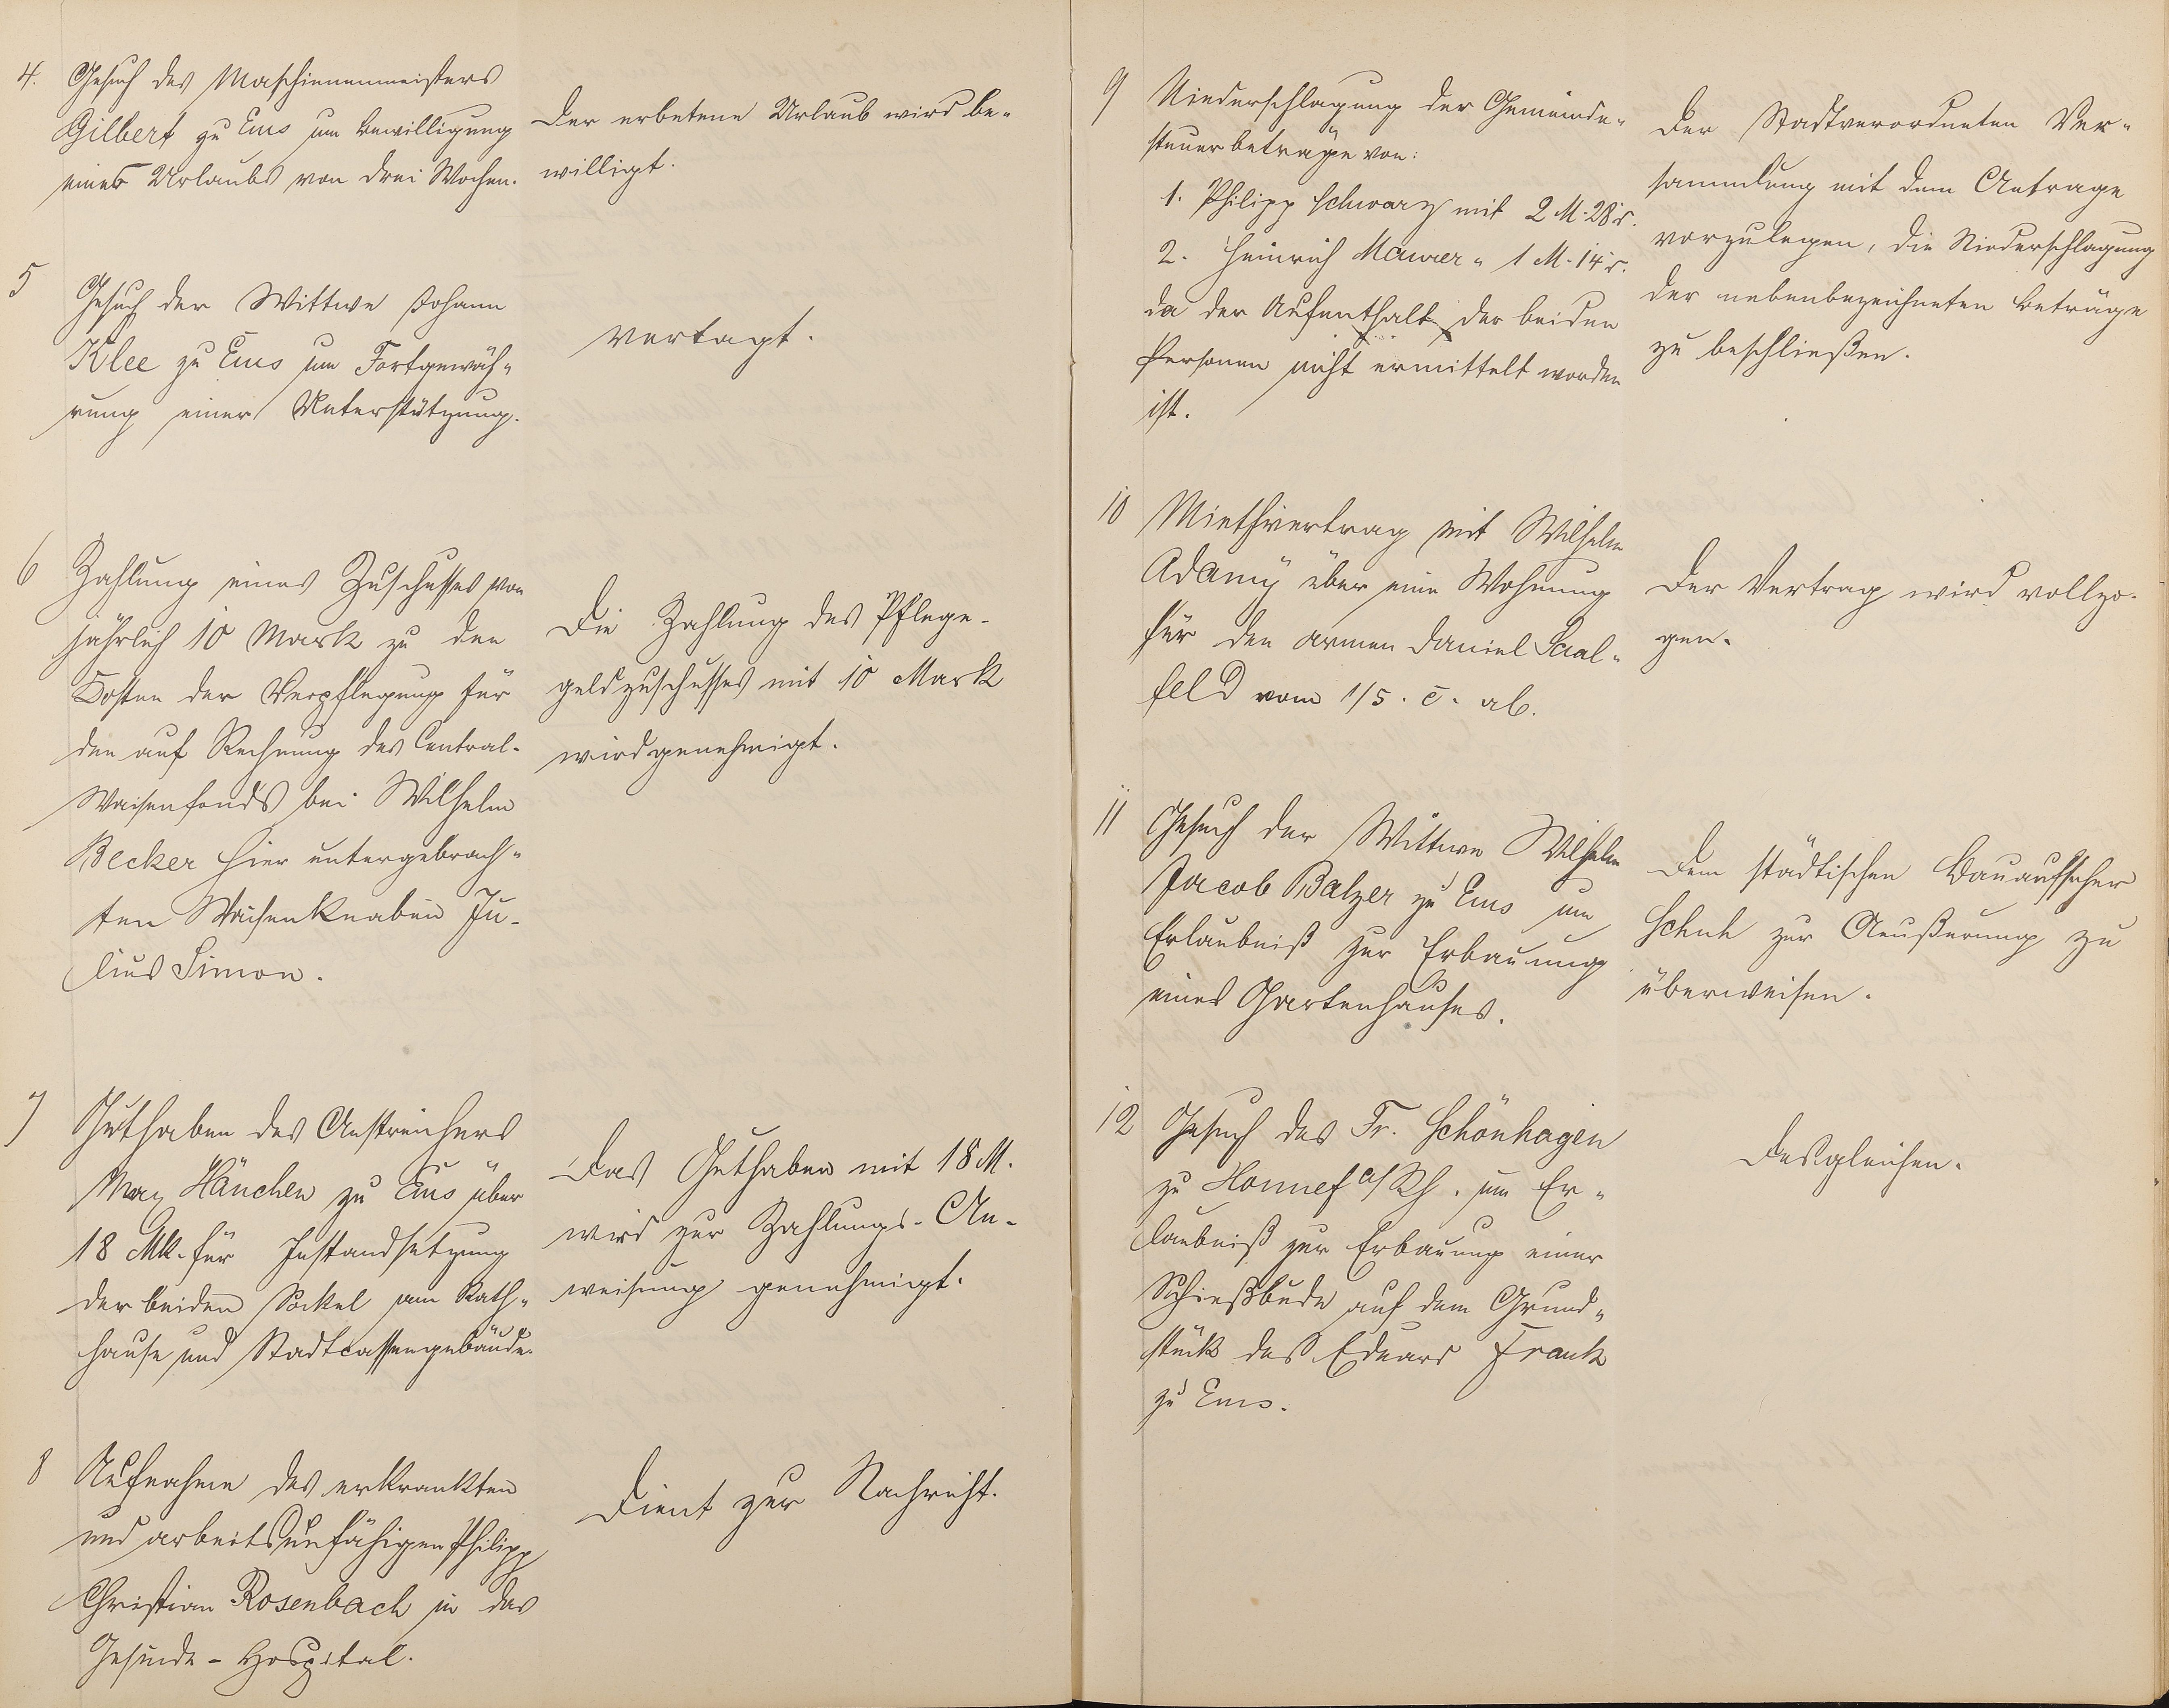 4. Gesuch des Maschienenmeisters
Gilbert zu Ems um Bewilligung
eines Urlaubs von drei Wochen.
Der erbetene Urlaub wird be-
willigt.
5 Gesuch der Wittwe Johann
Klee zu Ems um Fortgewäh-
rung einer Unterstützung.
Vertagt.
6 Zahlung eines Zuschusses von
jährlich 10 Mark zu den
Kosten der Verpflegung für
den auf Rechnung des Central-
Waisenfonds bei Wilhelm
Becker hier untergebrach-
ten Waisenknaben Ju-
lius Simon.
Die Zahlung des Pflege-
geldzuschusses mit 10 Mark
wird genehmigt.
7 Guthaben des Anstreichers
Max Hänchen zu Ems über
18 Mk. für Instandsetzung
der beiden Sockel am Rath-
hause und Stadtcassengebäude.
Das Guthaben mit 18 M.
wird zur Zahlungs-An-
weisung genehmigt.
8 Aufnahme des erkrankten
und arbeitsunfähigen Philipp
Christian Rosenbach in das
Gesinde-Hospital.
Dient zur Nachricht.
9 Niederschlagung der Gemeinde-
steuerbeträge von:
1. Philipp Schwarz mit 2 M. 28 d.
2. Heinrich Maurer " 1 M. 14 d.
da der Aufenthalt der beiden
Personen nicht ermittelt worden
ist.
Der Stadtverordneten Ver-
sammlung mit dem Antrage
vorzulegen, die Niederschlagung
der nebenbezeichneten Beträge
zu beschließen.
10 Miethvertrag mit Wilhelm
Adamÿ über eine Wohnung
für den armen Daniel Saal-
feld vom 1/5. c. ab.
Der Vertrag wird vollzo-
gen.
11 Gesuch der Wittwe Wilhelm
Jacob Balzer zu Ems um
Erlaubniß zur Erbauung
eines Gartenhauses.
Dem städtischen Bauaufseher
Schuh zur Aeußerung zu
überweisen.
12 Gesuch des Fr. Schönhagen
zu Honnef a/Rh. um Er-
laubniß zur Erbauung einer
Schießbude auf dem Grund-
stück des Eduard Frank
zu Ems.
Desgleichen.